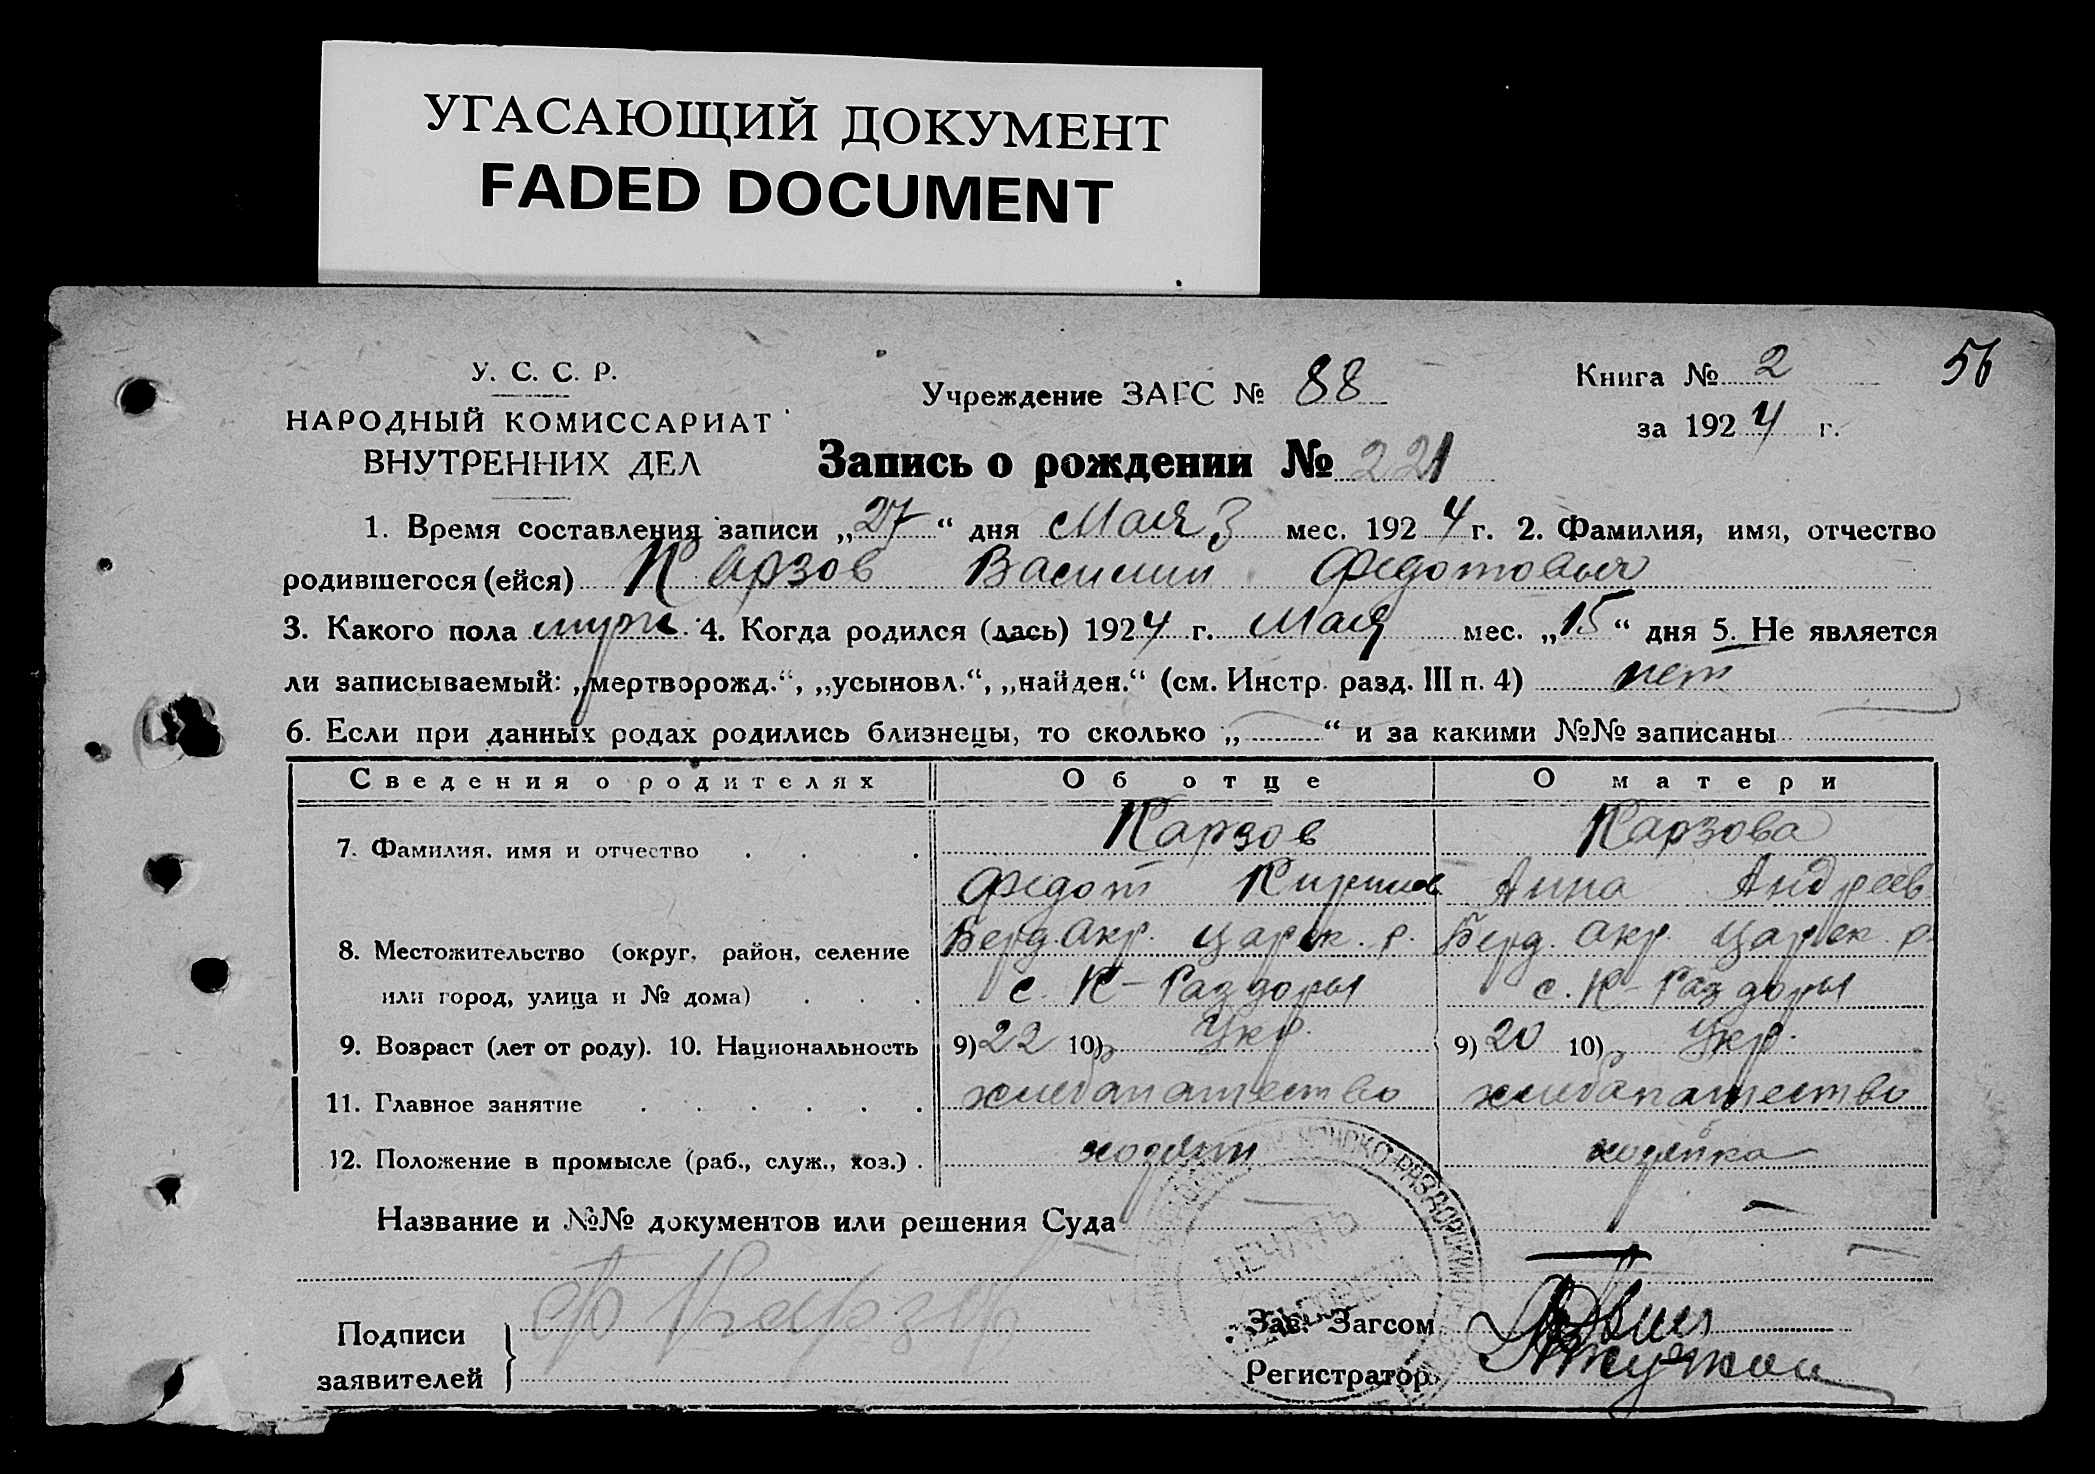 УГАСАЮЩИЙ ДОКУМЕНТ
FADED DOCUMENT
У. С. С. Р.
НАРОДНЫЙ КОМИССАРИАТ
ВНУТРЕННИХ ДЕЛ
Учреждение ЗАГС № 88
Книга № 2
56
за 1924 г.
Запись о рождении № 221
1. Время составления записи „27“ дня Мая мес. 1924 г. 2. Фамилия, имя, отчество
родившегося (ейся) Карзов Василий Федотович
3. Какого пола муж. 4. Когда родился (лась) 1924 г. Мая мес. „15“ дня 5. Не является
ли записываемый: „мертворожд.“, „усыновл.“, „найден.“ (см. Инстр. разд. III п. 4) нет
6. Если при данных родах родились близнецы, то сколько „ “ и за какими №№ записаны
Сведения о родителях Об отце О матери
7. Фамилия, имя и отчество Карзов Карзова
Федот Кирилов Анна Андреев
8. Местожительство (округ, район, селение Берд. окр. Царек. р. Берд. окр. Царек. р.
или город, улица и № дома) с. К-Раздоры с. К-Раздоры
9. Возраст (лет от роду). 10. Национальность 9) 22 10) Укр. 9) 20 10) Укр.
11. Главное занятие хлебопашество хлебопашество
12. Положение в промысле (раб., служ., хоз.) хозяин хозяйка
Название и №№ документов или решения Суда
КОНСКО-РАЗДОРСКИЙ
ПЕЧАТЬ
Подписи Ф Карзов Зав. Загсом
заявителей Регистратор